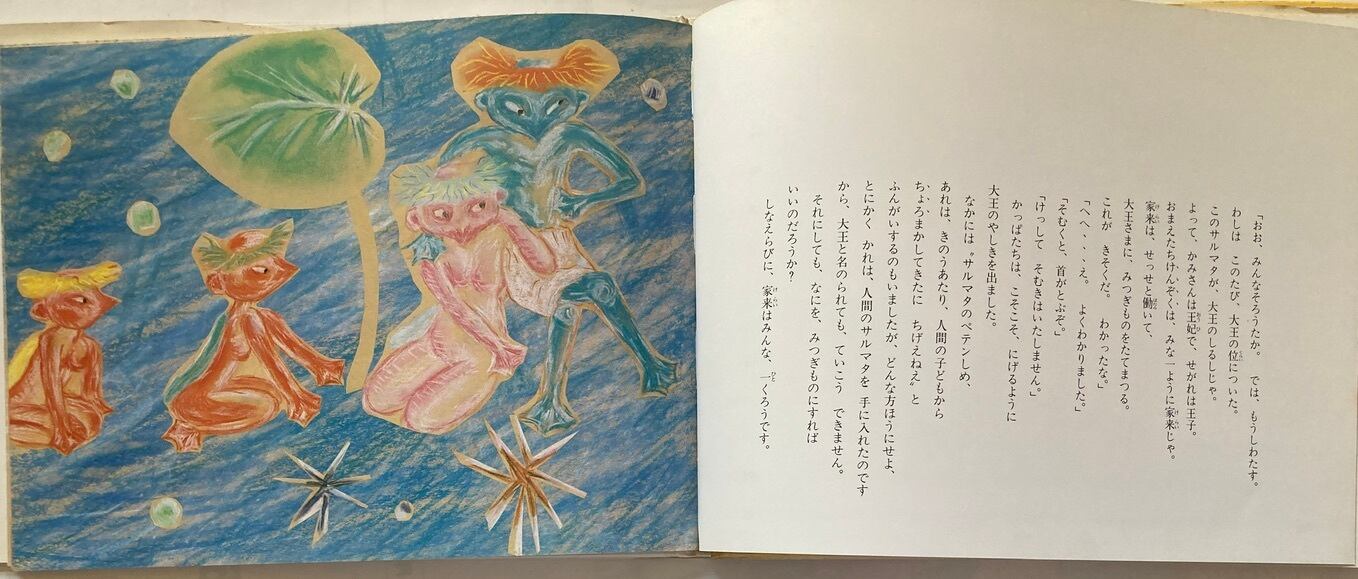 「おお、みんなそろうたか。　では、もうしわたす。
わしは　このたび、大王の位についた。
このサルマタが、大王のしるしじゃ。
よって、かみさんは王妃で、せがれは王子。
おまえたちけんぞくは、みな一ように家来じゃ。
家来は、せっせと働いて、
大王さまに、みつぎものをたてまつる。
これが　きそくだ。　わかったな。」
「へへ・・・え。　よくわかりました。」
「そむくと、首がとぶぞ。」
「けっして　そむきはいたしません。」
かっぱたちは、こそこそ、にげるように
大王のやしきを出ました。
なかには〝サルマタのペテンしめ、
あれは、きのうあたり、人間の子どもから
ちょろまかしてきたに　ちげえねえ〟と
ふんがいするのもいましたが、どんな方ほうにせよ、
とにかく　かれは、人間のサルマタを　手に入れたのです
から、大王と名のられても、ていこう　できません。
それにしても、なにを、みつぎものにすれば
いいのだろうか？
しなえらびに、家来はみんな、一くろうです。